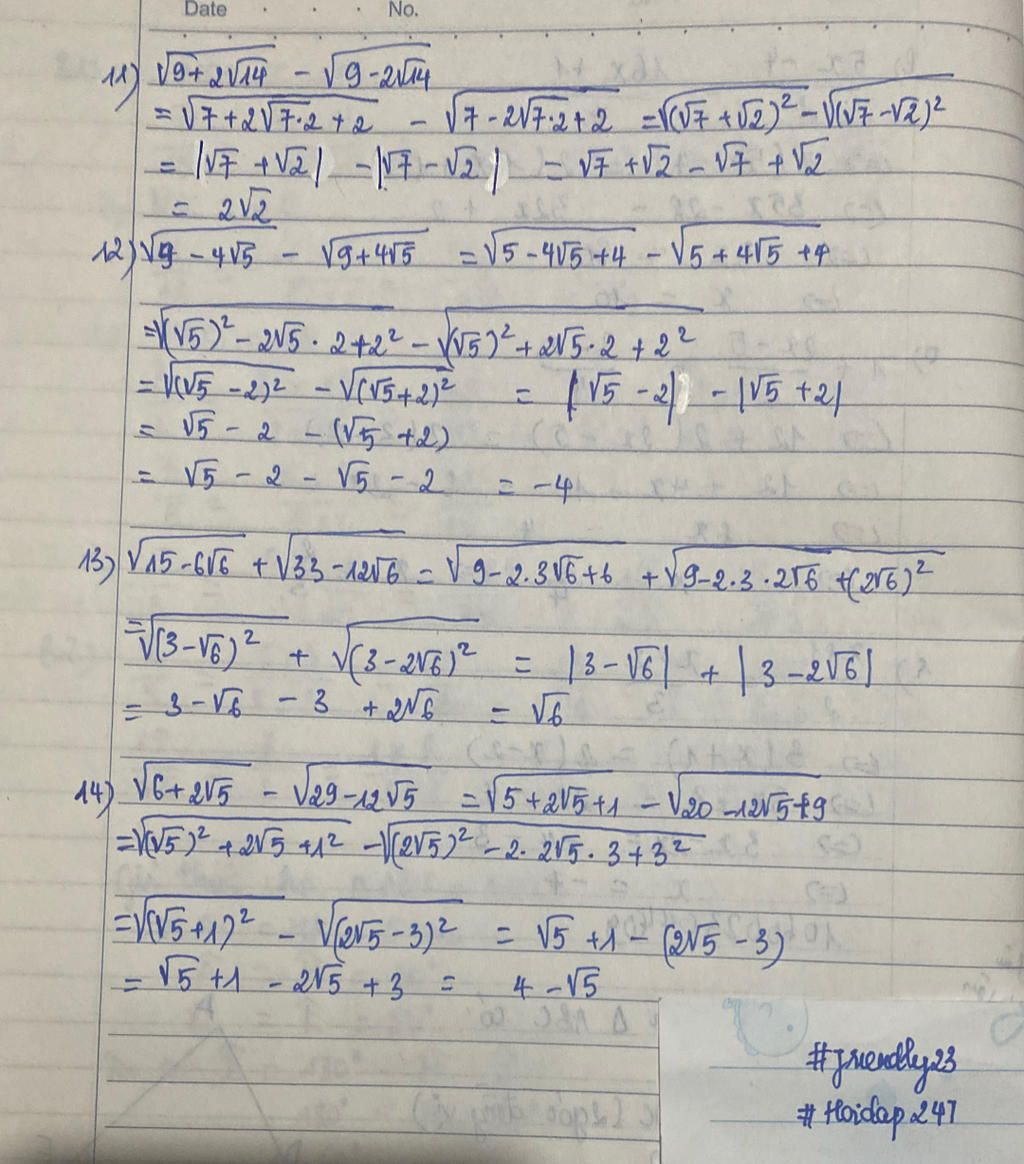 Date . . . No.
11) √(9+2√14) - √(9-2√14)
= √(7+2√7·2+2) - √(7-2√7·2+2) = √((√7+√2)²) - √((√7-√2)²)
= |√7+√2| - |√7-√2| = √7+√2-√7+√2
= 2√2
12) √(9-4√5) - √(9+4√5) = √(5-4√5+4) - √(5+4√5+4)
= √((√5)²-2√5·2+2²) - √((√5)²+2√5·2+2²)
= √((√5-2)²) - √((√5+2)²) = |√5-2| - |√5+2|
= √5-2-(√5+2)
= √5-2-√5-2 = -4
13) √(15-6√6) + √(33-12√6) = √(9-2.3√6+6) + √(9-2.3.2√6+(2√6)²)
= √((3-√6)²) + √((3-2√6)²) = |3-√6| + |3-2√6|
= 3-√6-3+2√6 = √6
14) √(6+2√5) - √(29-12√5) = √(5+2√5+1) - √(20-12√5+9)
= √((√5)²+2√5+1²) - √((2√5)²-2.2√5.3+3²)
= √((√5+1)²) - √((2√5-3)²) = √5+1-(2√5-3)
= √5+1-2√5+3 = 4-√5
#friendly23
#Hoidap247